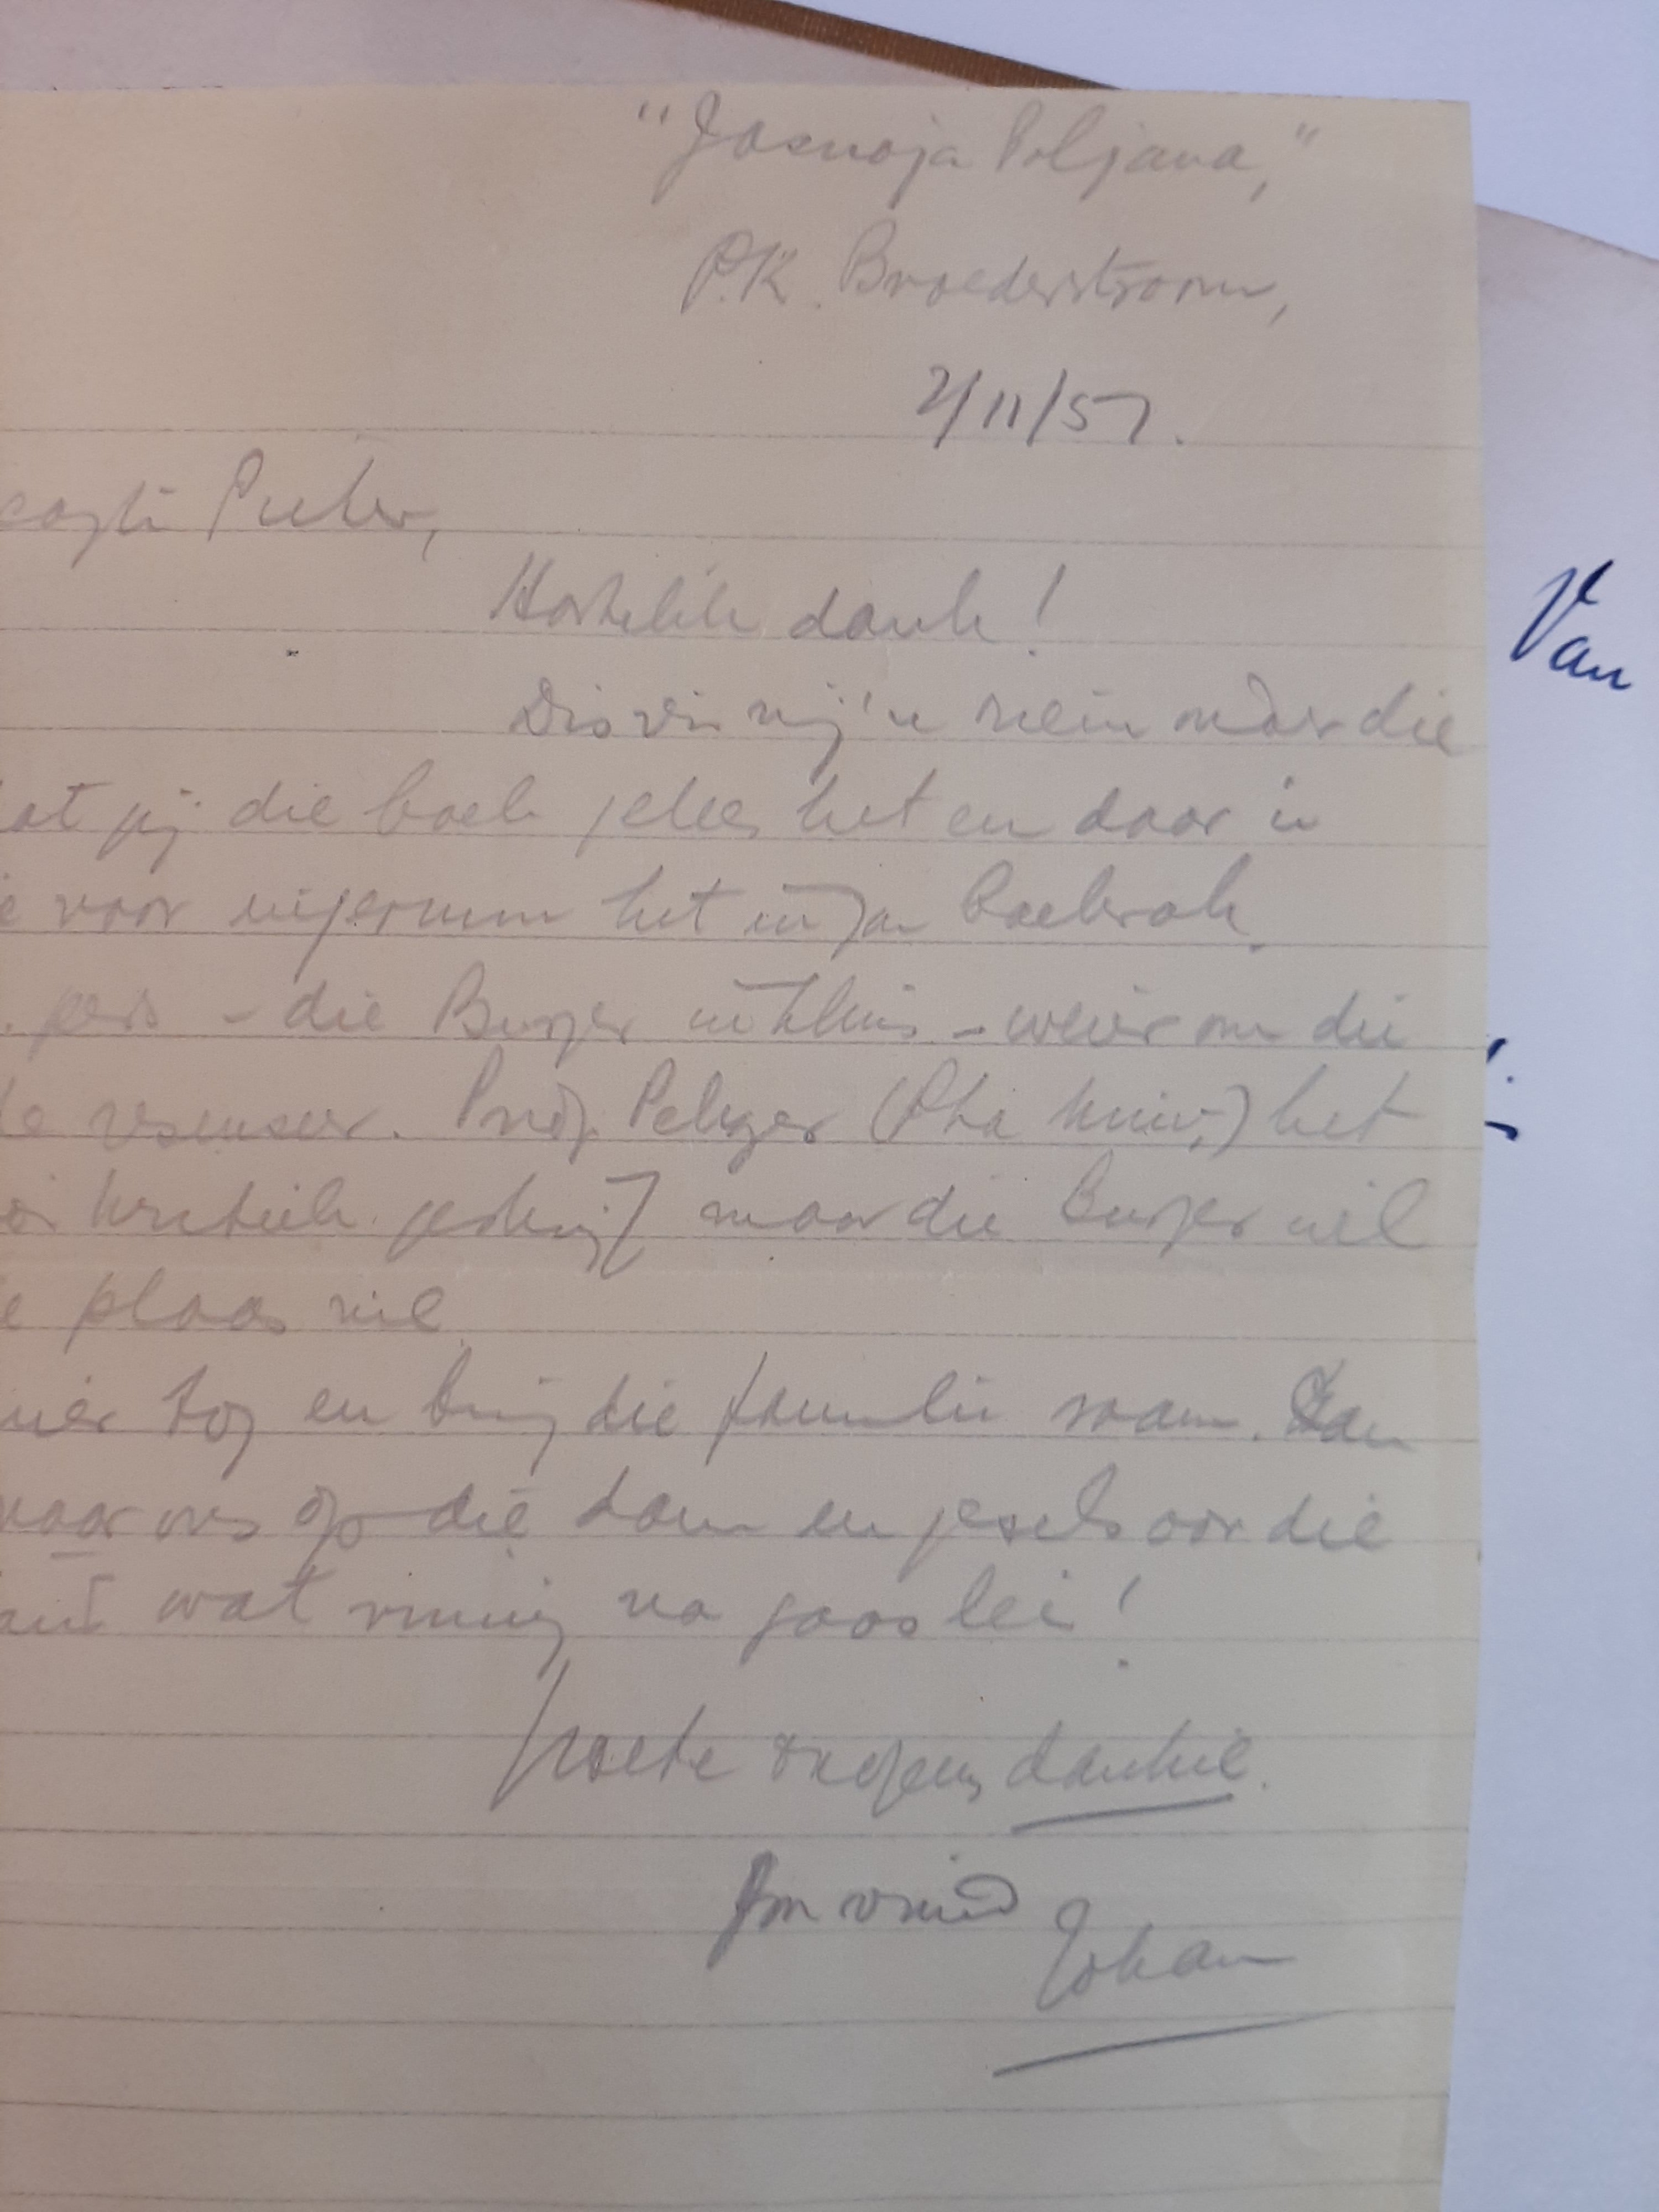 "Jasnaja Poljana,"
P.K. Broederstroom,
2/11/57.
Pieter,
Hartelik dank!
Dis vir my 'n riem onder die
at jy die boek gelees het en daar 'n
voor ingeruim het in jou boekrak.
pers – die Burger inkluis – weier om die
te resenseer. Prof. Pelzer (Pta Univ.) het
kritiek geskryf maar die Burger wil
plaas nie.
tog en bring die familie saam. Dan
vaar ons op die dam en gesels oor die
wat rining na gaas lei!
Groete & nogeens dankie.
Jou vriend
Johan
Van